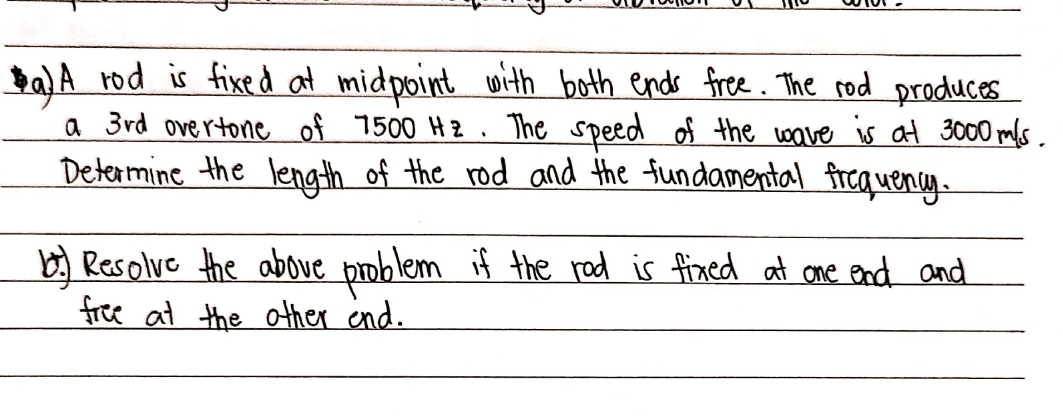 a) A rod is fixed at midpoint with both ends free. The rod produces
a 3rd overtone of 7500 Hz. The speed of the wave is at 3000 m/s.
Determine the length of the rod and the fundamental frequency.
b.) Resolve the above problem if the rod is fixed at one end and
free at the other end.